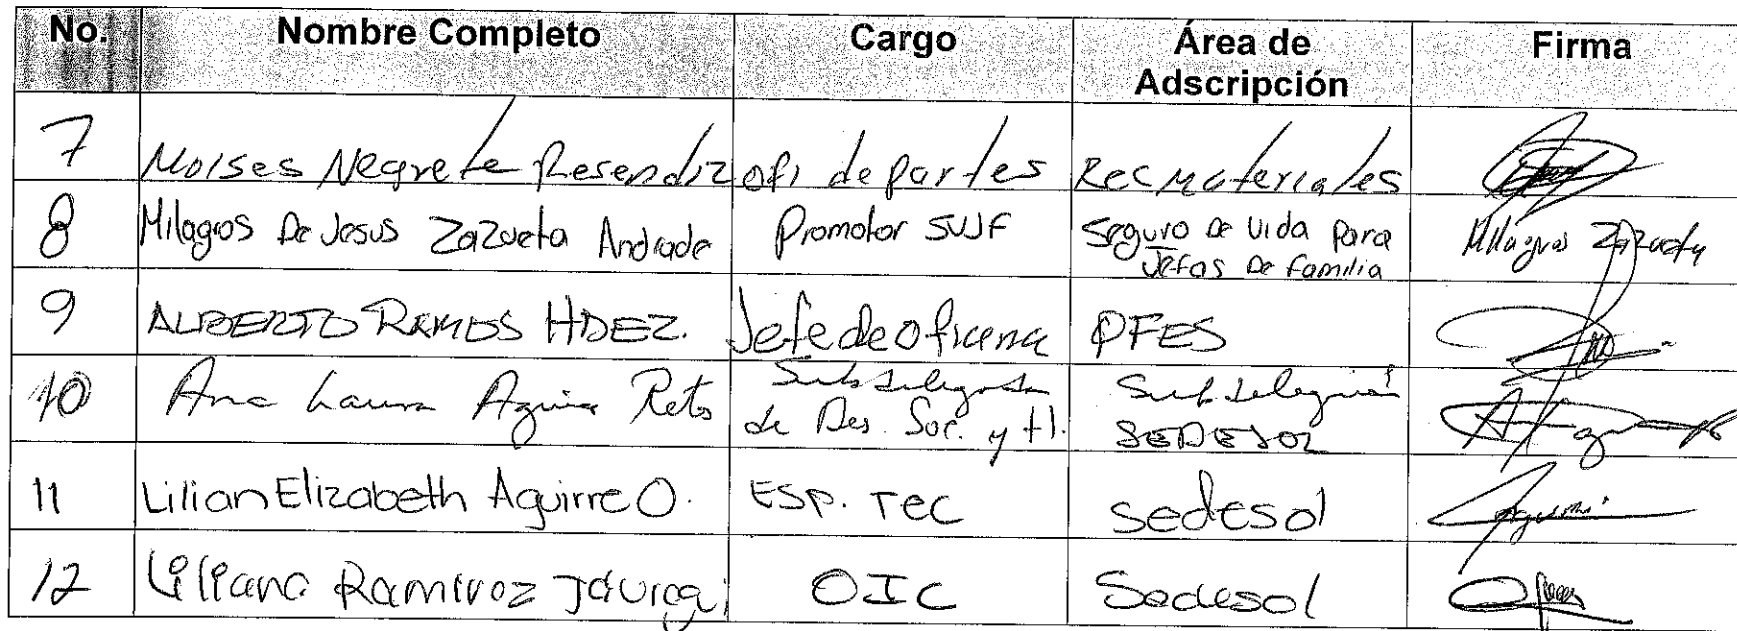 No. Nombre Completo Cargo Área de Adscripción Firma
7 Moises Negrete Resendiz ofi de partes Rec Materiales
8 Milagros De Jesus Zazueta Andrade Promotor SVJF Seguro de Vida para Jefas De familia Milagros Zazueta
9 ALBERTO RAMOS HDEZ. Jefe de oficina PFES
10 Ana Laura Reto Subdelegada de Des. Soc. y H. SEDESOL
11 Lilian Elizabeth Aguirre O. ESP. TEC sedesol
12 Liliana Ramirez OIC Sedesol